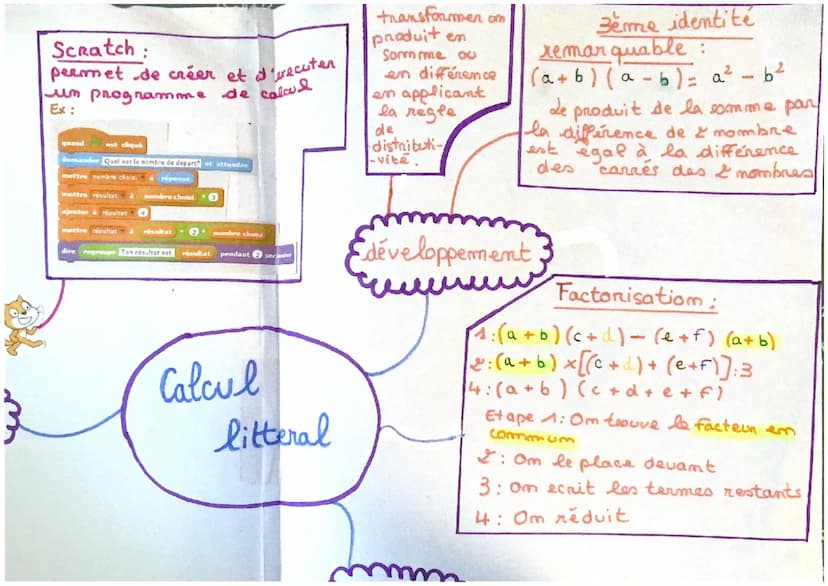 Scratch :
permet de créer et d'executer
un programme de calcul
Ex :
quand est cliqué
demander Quel est le nombre de départ? et attendre
mettre nombre choisi à réponse
mettre résultat à nombre choisi + 3
ajouter à résultat 4
mettre résultat à résultat * 2 + nombre choisi
dire regroupe Ton résultat est résultat pendant 2 secondes
transformer un
produit en
somme ou
en différence
en applicant
la regle
de
distributi-
-vité.
3ème identité
remarquable :
(a + b) (a - b) = a² - b²
Le produit de la somme par
la différence de 2 nombre
est égal à la différence
des carrés des 2 nombres
développement
Calcul
litteral
Factorisation :
1 : (a + b) (c + d) - (e + f) (a + b)
2 : (a + b) × [(c + d) + (e + f)] : 3
4 : (a + b) (c + d + e + f)
Etape 1 : On trouve le facteur en
commun
2 : On le place devant
3 : On ecrit les termes restants
4 : On réduit